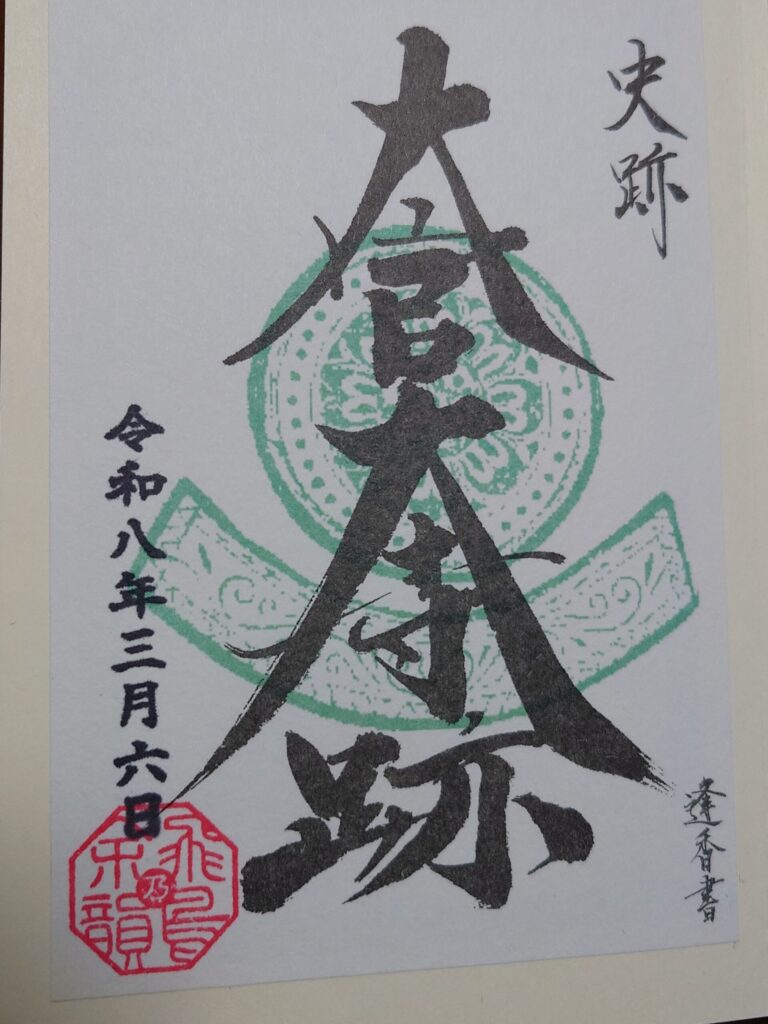 史跡
大官大寺跡
令和八年三月六日
逢香書
飛鳥乃余韻